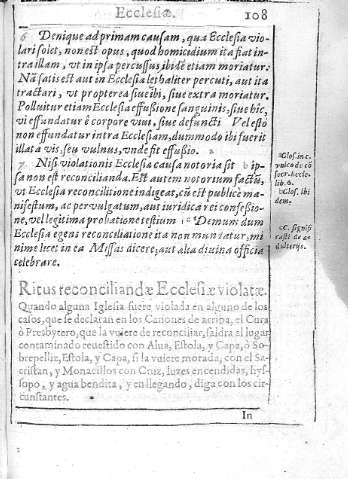 Ecclesiæ. 108
6 Denique ad primam causam, qua Ecclesia vio-
lari solet, non est opus, quod homicidium ita fiat in-
tra illam, vt in ipsa percussus ibidē etiam moriatur:
Nā satis est aut in Ecclesia lethaliter percuti, aut ita
tractari, vt propterea siue ibi, siue extra moriatur.
Polluitur etiam Ecclesia effussione sanguinis, siue hic,
vt effundatur è corpore viui, siue defuncti Vel estò
non effundatur intra Ecclesiam, dummodo ibi fuerit
illata vis, seu vulnus, vnde fit effusio.
7 Nisi violationis Ecclesia causa notoria sit ip-
sa non est reconcilianda. Est autem notorium factū,
vt Ecclesia reconcilitione indigeat, cū est publicè ma-
nifestum, ac peruulgatum, aut iuridica rei confesio-
ne, vel legitima probatione testium Demum dum
Ecclesia egens reconciliatione ita non muniatur, mi
nime licet in ea Missas dicere, aut alia diuina officia
celebrare.
Glos. in c.
de cō
secr. Eccle-
lib. 6.
Glos. ibi
dem.
cc. signifi
casti de ad
ulterijs.
Ritus reconciliandæ Ecclesiæ violatæ.
Quando alguna Iglesia fuere violada en alguno de los
casos, que se declaran en los Canones de arriba, el Cura
ò Presbytero, que la vuiere de reconciliar, saldra al lugar
contaminado reuestido con Alua, Estola, y Capa, ò So-
brepelliz, Estola, y Capa, si la vuiere morada, con el Sa-
cristan, y Monacillos con Cruz, luzes encendidas, hys-
sopo, y agua bendita, y en llegando, diga con los cir-
cunstantes.
In